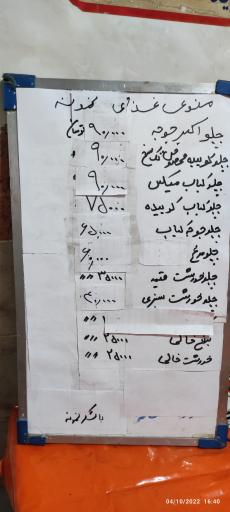 منوی غذای نمونه
چلو اکبر جوجه ۹۰,۰۰۰ تومان
چلو کوبیده مخصوص با گوجه ۹۰,۰۰۰
چلو کباب میکس ۹۰,۰۰۰
چلو کباب کوبیده ۷۵۰۰۰
چلو جوجه کباب ۶۵,۰۰۰
چلو مرغ ۶۰,۰۰۰
چلو خورشت قیمه ۳۵۰۰۰
چلو خورشت سبزی ۴۰,۰۰۰
برنج خالی ۲۵۰۰۰
خورشت خالی ۲۵۰۰۰
با تشکر نمونه
04/10/2022 16:40